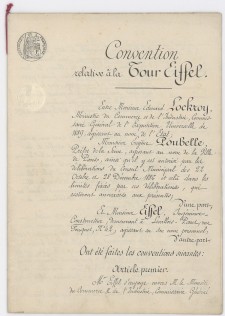 Convention
relative à la Tour Eiffel.
Entre Monsieur Edouard Lockroy,
Ministre du Commerce et de l'Industrie, Commis-
saire Général de l'Exposition Universelle de
1889, agissant au nom de l'Etat,
Monsieur Eugène Poubelle,
Préfet de la Seine, agissant au nom de la Ville
de Paris, ainsi qu'il y est autorisé par les
délibérations du Conseil Municipal des 22
Octobre et 28 Décembre 1886 et dans les
limites fixées par ces délibérations, qui
resteront annexées aux présentes,
D'une part,
Et Monsieur Eiffel, Ingénieur-
Constructeur, demeurant à Levallois-Perret, rue
Fouquet, Nº 42, agissant en son nom personnel,
D'autre part.
Ont été faites les conventions suivantes:
Article premier.
Mr. Eiffel s'engage envers M. le Ministre
du Commerce et de l'Industrie, Commissaire Général